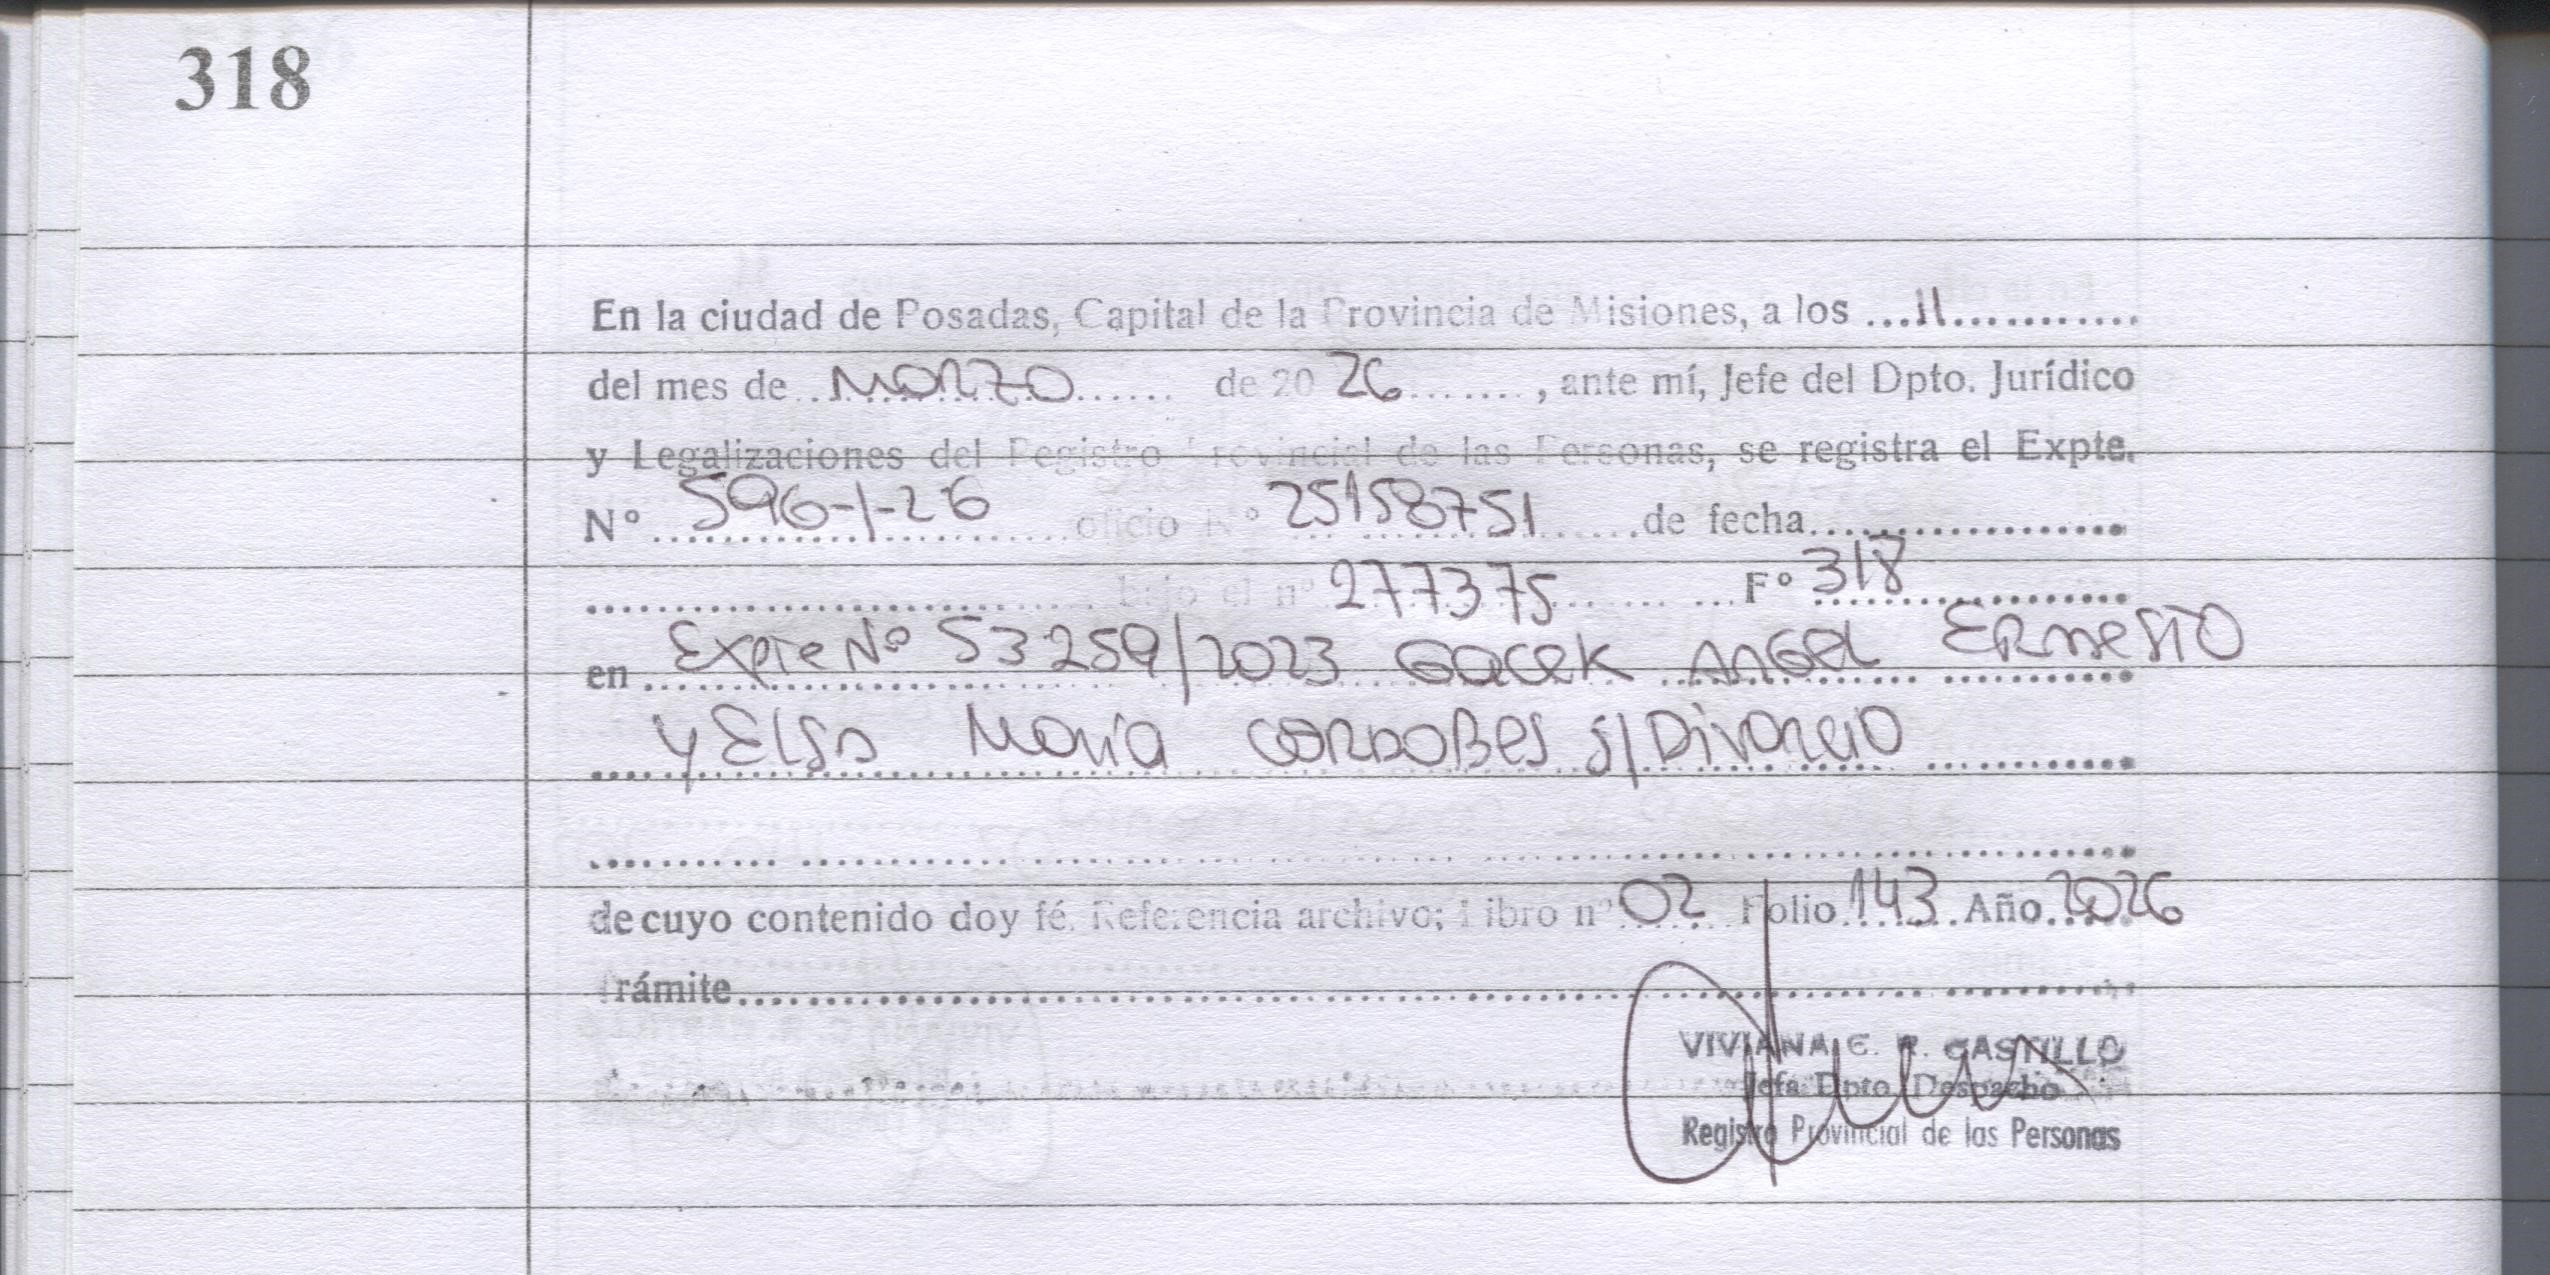 318
En la ciudad de Posadas, Capital de la Provincia de Misiones, a los ...11............
del mes de ..Marzo...... de 20 26......., ante mí, Jefe del Dpto. Jurídico
y Legalizaciones del Registro Provincial de las Personas, se registra el Expte.
N° 596-1-26 oficio N° 25158751 de fecha..................
bajo el n° 277375 F° 318
en Expte Nº 53259/2023 GACEK ANGEL ERNESTO
y Elsa Maria CORDOBES s/Divorcio
de cuyo contenido doy fé. Referencia archivo; Libro n° 02 Folio 143 Año 2026
trámite..................
VIVIANA E. R. CASTILLO
Jefa Dpto Despacho
Registro Provincial de las Personas